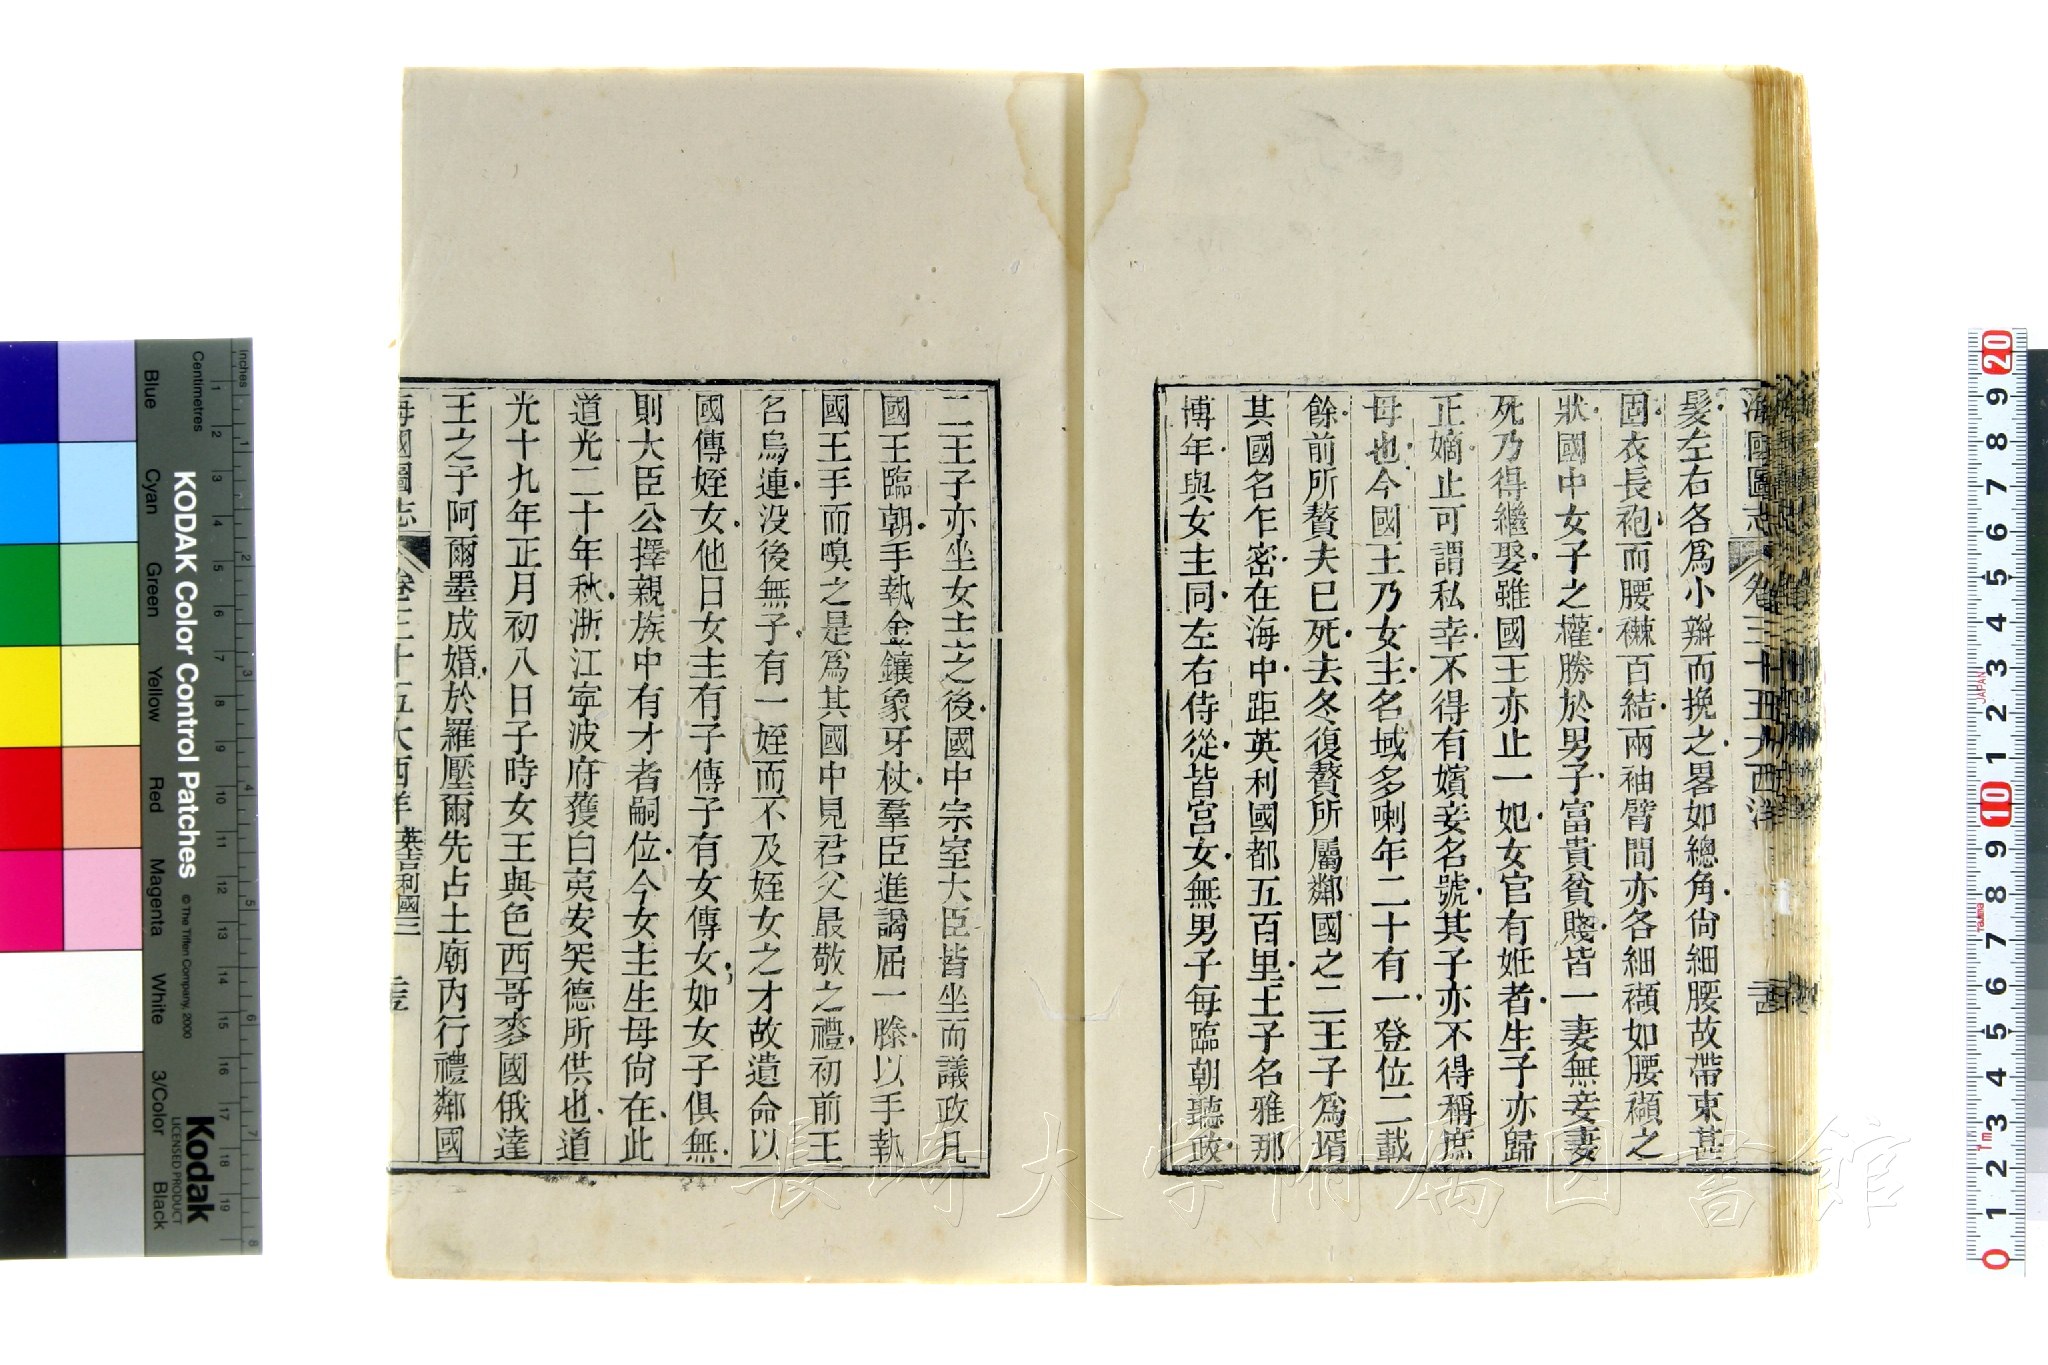 海國圖志 卷三十五大西洋 二百
髮左右各爲小辮而挽之畧如總角尙細腰故帶束甚
固衣長袍而腰襋百結兩袖臂間亦各細襭如腰襭之
狀國中女子之權勝於男子富貴貧賤皆一妻無妾妻
死乃得繼娶雖國王亦止一妃女官有姙者生子亦歸
正嫡止可謂私幸不得有嬪妾名號其子亦不得稱庶
母也今國王乃女主名域多喇年二十有一登位二載
餘前所贅夫已死去冬復贅所屬鄰國之二王子爲壻
其國名乍密在海中距英利國都五百里王子名雅那
博年與女主同左右侍從皆宮女無男子每臨朝聽政
二王子亦坐女主之後國中宗室大臣皆坐而議政凡
國王臨朝手執金鑲象牙杖羣臣進謁屈一膝以手執
國王手而嗅之是爲其國中見君父最敬之禮初前王
名烏連没後無子有一姪而不及姪女之才故遺命以
國傳姪女他日女主有子傳子有女傳女如女子俱無
則大臣公擇親族中有才者嗣位今女主生母尙在此
道光二十年秋浙江寧波府獲白夷安突德所供也道
光十九年正月初八日子時女王與色西哥麥國俄達
王之子阿爾墨成婚於羅壓爾先占土廟內行禮鄰國
海國圖志 卷三十五大西洋 英吉利國三
KODAK Color Control Patches
© The Tiffen Company, 2000
Kodak
LICENSED PRODUCT
Inches
Centimetres
Blue Cyan Green Yellow Red Magenta White 3/Color Black
1 2 3 4 5 6 7 8 9 10 11 12 13 14 15 16 17 18 19
1 2 3 4 5 6 7 8
20 9 8 7 6 5 4 3 2 1 10 9 8 7 6 5 4 3 2 1 0
JAPAN
1m
長崎大学附属図書館